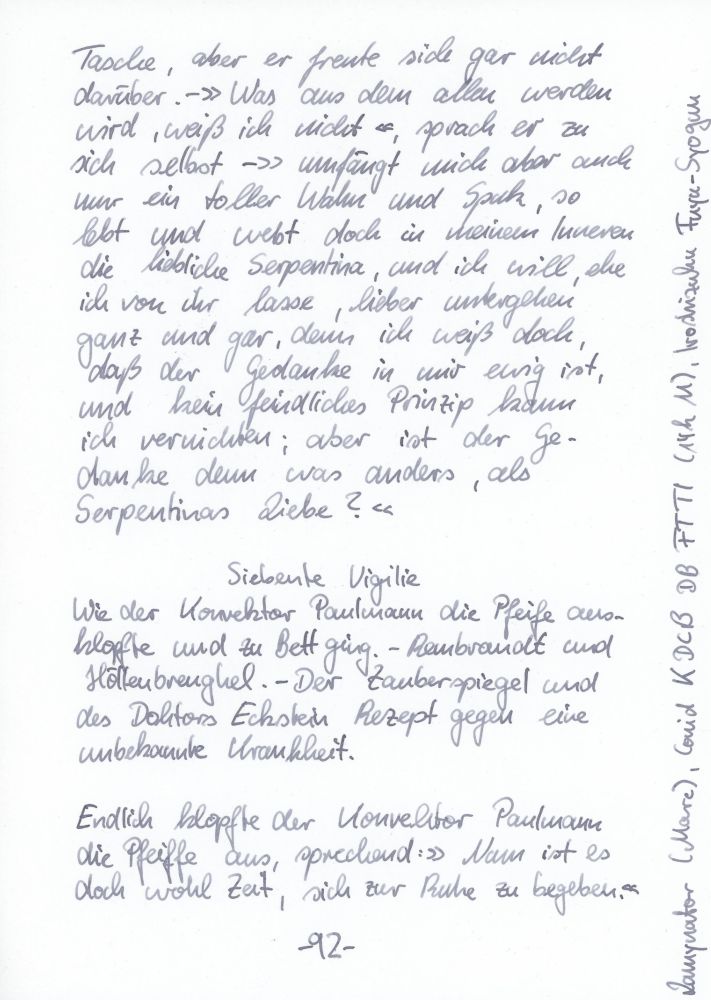 Tasche, aber er freute sich gar nicht
darüber. –>> Was aus dem allen werden
wird, weiß ich nicht <<, sprach er zu
sich selbst –>> umfängt mich aber auch
nur ein toller Wahn und Spuk, so
lebt und webt doch in meinem Inneren
die liebliche Serpentina, und ich will, ehe
ich von ihr lasse, lieber untergehen
ganz und gar, denn ich weiß doch,
daß der Gedanke in mir ewig ist,
und kein feindliches Prinzip kann
ich vernichten; aber ist der Ge-
danke denn was anders, als
Serpentinas Liebe? <<
Siebente Vigilie
Wie der Konrektor Paulmann die Pfeife aus-
klopfte und zu Bett ging. – Rembrandt und
Höllenbreughel. – Der Zauberspiegel und
des Doktors Eckstein Rezept gegen eine
unbekannte Krankheit.
Endlich klopfte der Konrektor Paulmann
die Pfeiffe aus, sprechend: >> Nun ist es
doch wohl Zeit, sich zur Ruhe zu begeben. <<
-92-
(Marc), Covid KDCB DB FTTI (14k M), Fuyu-Syogun